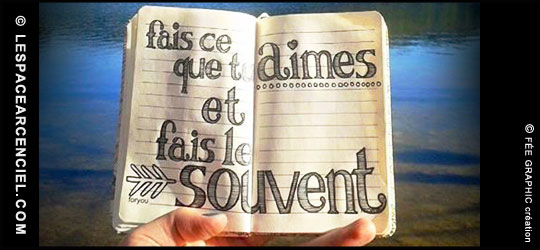 © LESPACEARCENCIEL.COM
fais ce
que tu aimes
et
fais le
souvent
foryou
© FÉE GRAPHIC création